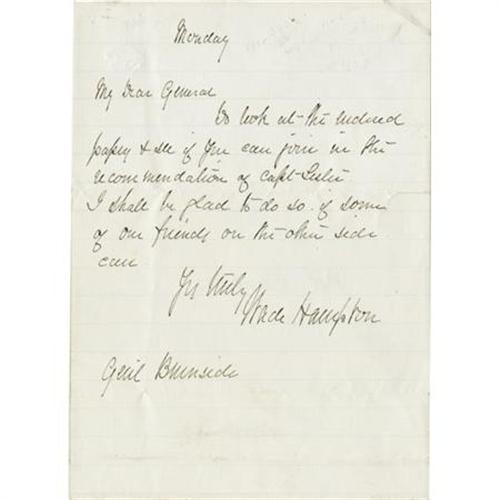 Monday
My Dear General
Do look at the enclosed
papers & see if you can join in the
recommendation of Capt Leslie
I shall be glad to do so if some
of our friends on the other side
can
Yrs truly
Wade Hampton
Genl Burnside